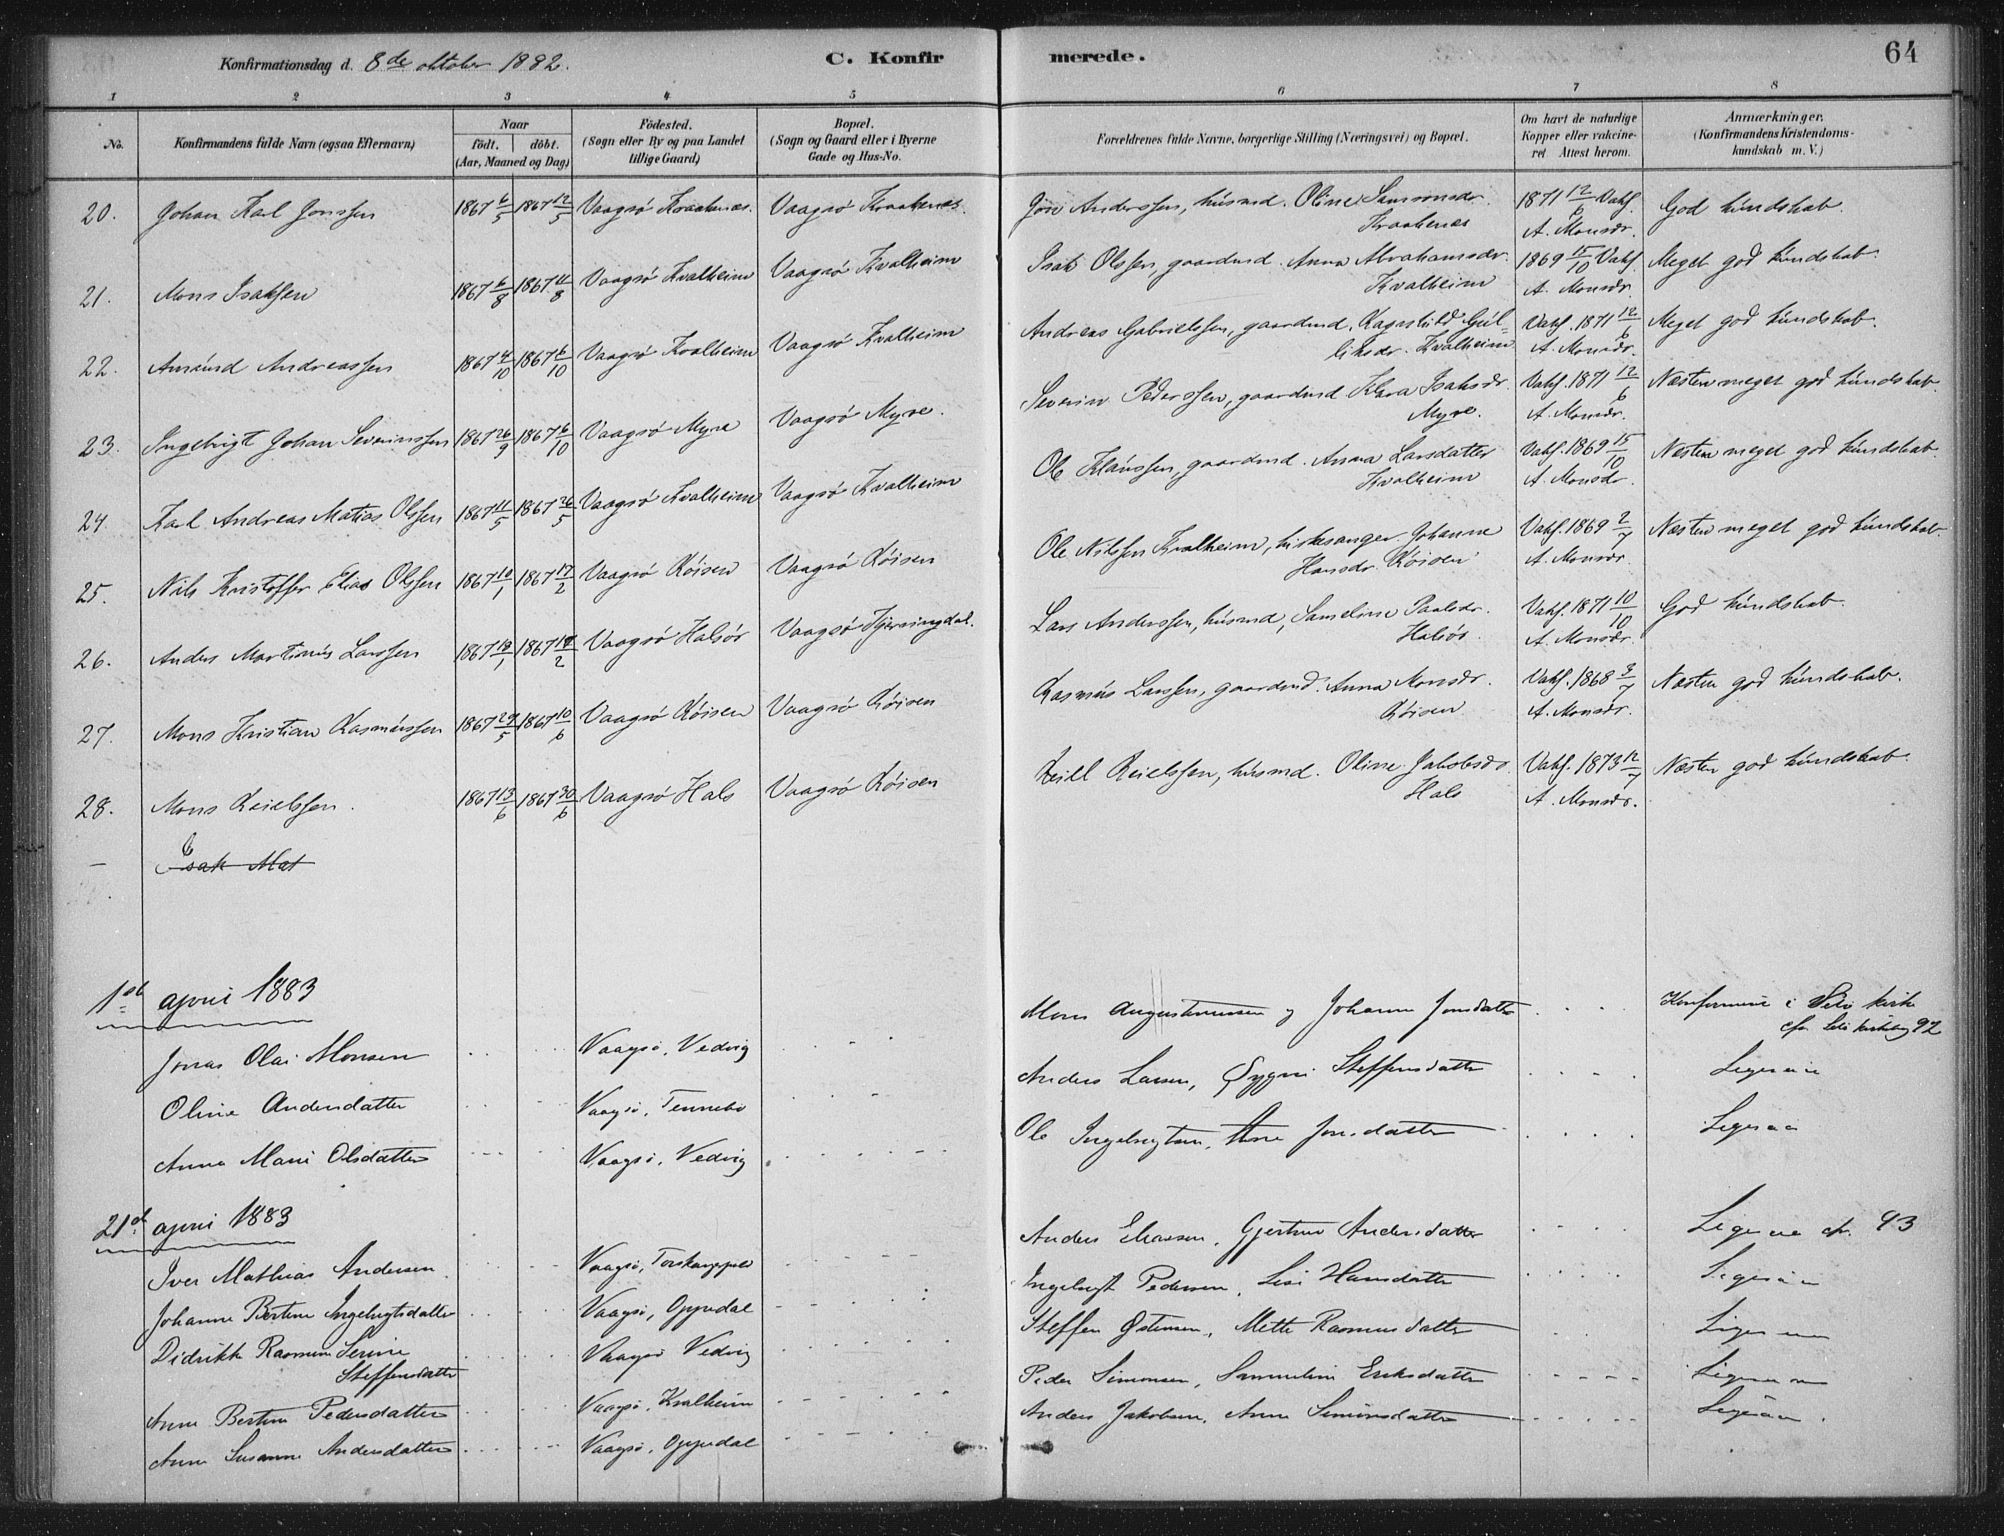 Konfirmationsdag d. 8de oktober 1882. C. Konfirmerede. 64
1 2 3 4 5 6 7 8
No. Konfirmandens fulde Navn (ogsaa Efternavn) Naar födt. döbt. (Aar, Maaned og Dag) Födested. (Sogn eller By og paa Landet tillige Gaard) Bopæl. (Sogn og Gaard eller i Byerne Gade og Hus-No. Forældrenes fulde Navne, borgerlige Stilling (Næringsvei) og Bopæl. Om havt de naturlige Kopper eller vakcineret Attest herom. Anmærkninger. (Konfirmandens Kristendomskundskab m. V.)
20. Johan Karl Jonssen 1867 6/5 1867 12/5 Vaagsö Kraakenæs. Vaagsö Kraakenæs. Jon Anderssen, husmd. Oline Samsonsdr. Kraakenæs 1871 12/6 Vakf. A. Monsdr. God kundskab.
21. Mons Isaksen 1867 6/8 1867 11/8 Vaagsö Kvalheim Vaagsö Kvalheim Isak Olssen, gaardmd. Anna Abrahamsdr. Kvalheim 1869 15/10 Vakf. A. Monsdr. Meget god kundskab.
22. Amund Andreassen 1867 4/10 1867 6/10 Vaagsö Kvalheim Vaagsö Kvalheim Andreas Gabrielssen, gaardmd. Ragnhild Gulliksdr. Kvalheim Vakf. 1871 12/6 A. Monsdr. Meget god kundskab.
23. Ingebrigt Johan Severinssen 1867 26/9 1867 6/10 Vaagsö Myre Vaagsö Myre. Severin Pederssen, gaardmd Klara Isaksdr. Myre. Vakf. 1871 12/6 A. Monsdr. Næsten meget god kundskab.
24. Karl Andreas Matias Olssen 1867 11/5 1867 26/5 Vaagsö Kvalheim Vaagsö Kvalheim Ole Klaussen, gaardmd. Anna Larsdatter Kvalheim Vakf. 1869 15/10 A. Monsdr. Næsten meget god kundskab.
25. Nils Kristoffer Elias Olssen 1867 10/1 1867 17/2 Vaagsö Röisen Vaagsö Röisen Ole Nilssen Kvalheim, kirkesanger Johanna Hansdr. Röisen Vakf. 1869 2/7 A. Monsdr. Næsten meget god kundskab.
26. Anders Martinus Larssen 1867 19/1 1867 17/2 Vaagsö Halsör Vaagsö Hjerringdal. Lars Anderssen, husmd, Sameline Paalsdr. Halsör. Vakf. 1871 10/10 A. Monsdr. God kundskab.
27. Mons Kristian Rasmussen 1867 27/5 1867 10/6 Vaagsö Röisen Vaagsö Röisen Rasmus Larssen, gaardmd. Anna Monsdr. Röisen Vakf. 1868 3/7 A. Monsdr. Næsten god kundskab.
28. Mons Reielssen. 1867 13/6 1867 30/6 Vaagsö Hals Vaagsö Röisen Reiel Reielssen, husmd. Oline Jakobsdr Hals Vakf. 1873 12/7 A. Monsdr. Næsten god kundskab.
– Isak Mat
1ste april 1883
Jonas Olai Monsen Vaagsö, Vedvig Mons Augustinussen og Johanne Jonsdatter Konfirmeret i Selø kirke cfr. Selø kirkebog 92
Oline Andersdatter Vaagsö, Tennebø Anders Larsen, Sygni Steffensdatter Ligesaa
Anna Marie Olsdatter Vaagsö, Vedvig Ole Ingebrigtsen, Ane Jonsdatter Ligesaa
21de april 1883
Iver Mathias Andersen Vaagsö, Torskangpold Anders Eliassen, Gjertrud Andersdatter Ligesaa cfr. 93
Johanne Bertine Ingebrigtsdatter Vaagsö, Oppedal Ingebrigt Pedersen, Lisi Hansdatter Ligesaa
Didrikke Rasmine Serine Steffensdatter Vaagsö Vedvig Steffen Østensen, Mette Rasmusdatter Ligesaa
Anne Bertine Pedersdatter Vaagsö, Kvalheim Peder Simonsen, Sammeline Eriksdatter Ligesaa
Anne Susanne Andersdatter Vaagsö, Oppedal Anders Jakobsen, Anne Simonsdatter Ligesaa.